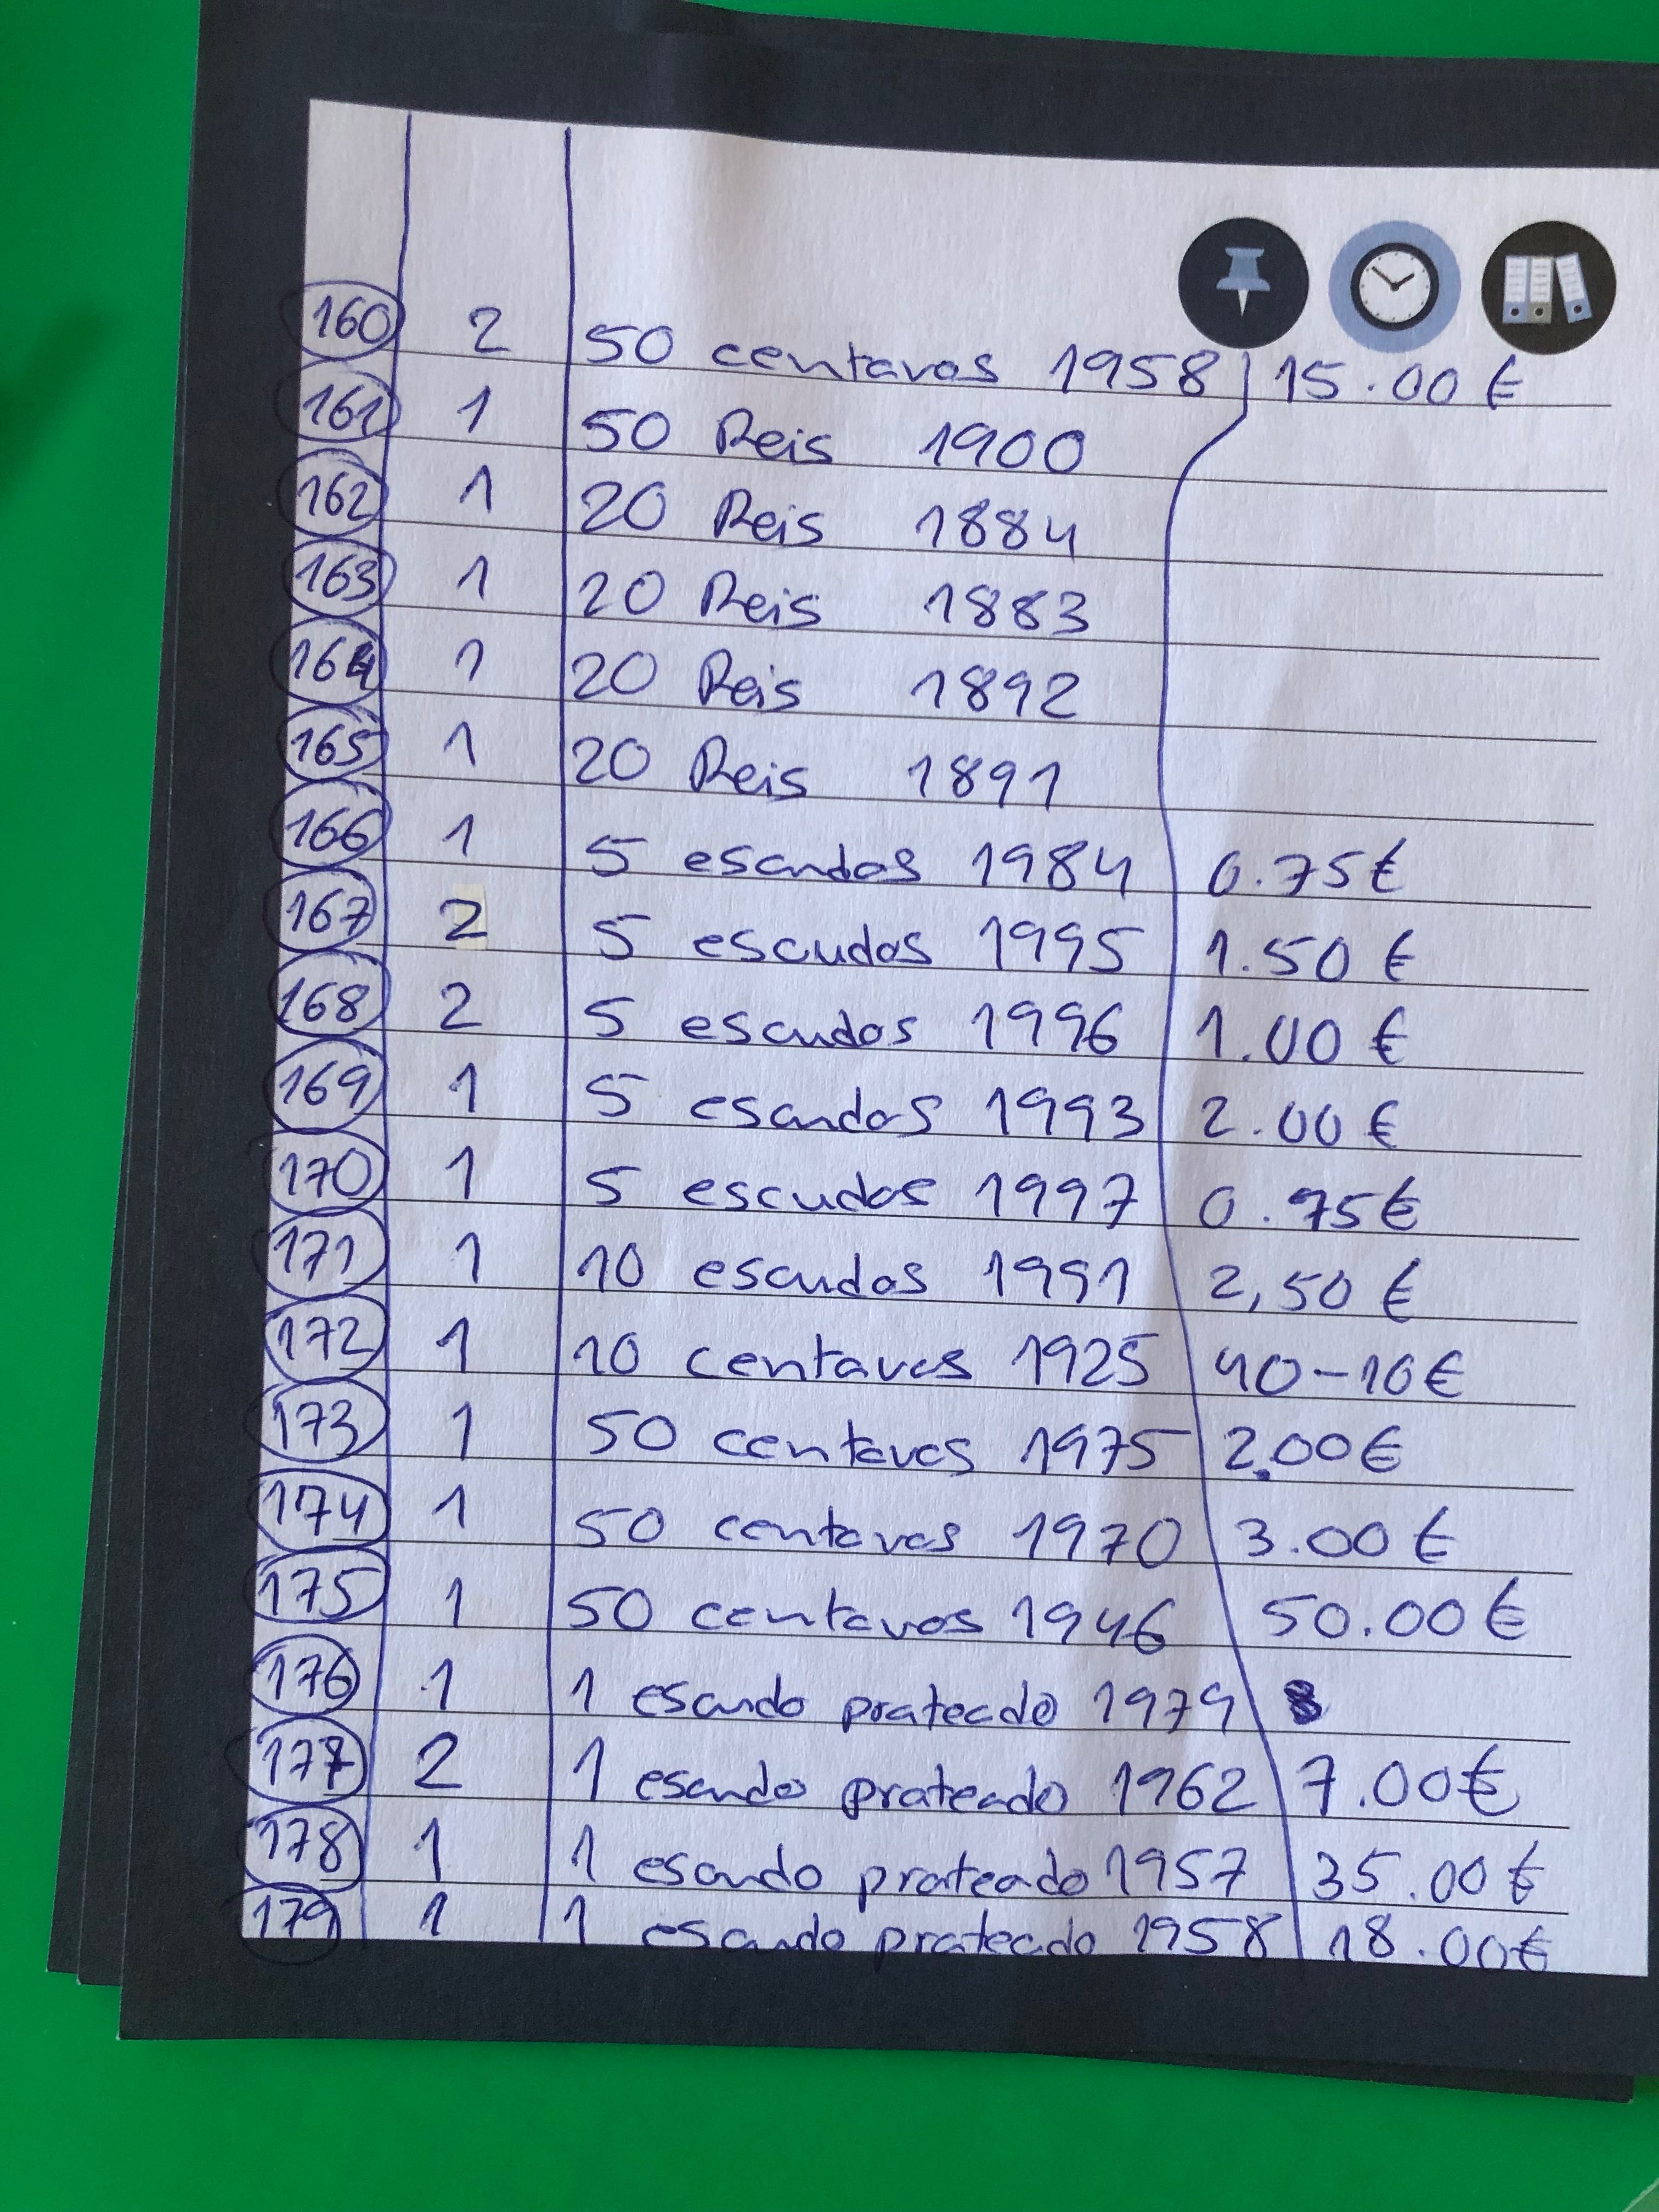 160 2 50 centavos 1958 15.00 €
161 1 50 Reis 1900
162 1 20 Reis 1884
163 1 20 Reis 1883
164 1 20 Reis 1892
165 1 20 Reis 1891
166 1 5 escudos 1984 0.75 €
167 2 5 escudos 1995 1.50 €
168 2 5 escudos 1996 1.00 €
169 1 5 escudos 1993 2.00 €
170 1 5 escudos 1997 0.75 €
171 1 10 escudos 1991 2,50 €
172 1 10 centavos 1925 40-10 €
173 1 50 centavos 1975 2.00 €
174 1 50 centavos 1970 3.00 €
175 1 50 centavos 1946 50.00 €
176 1 1 escudo prateado 1979
177 2 1 escudo prateado 1962 7.00 €
178 1 1 escudo prateado 1957 35.00 €
179 1 1 escudo prateado 1958 18.00 €